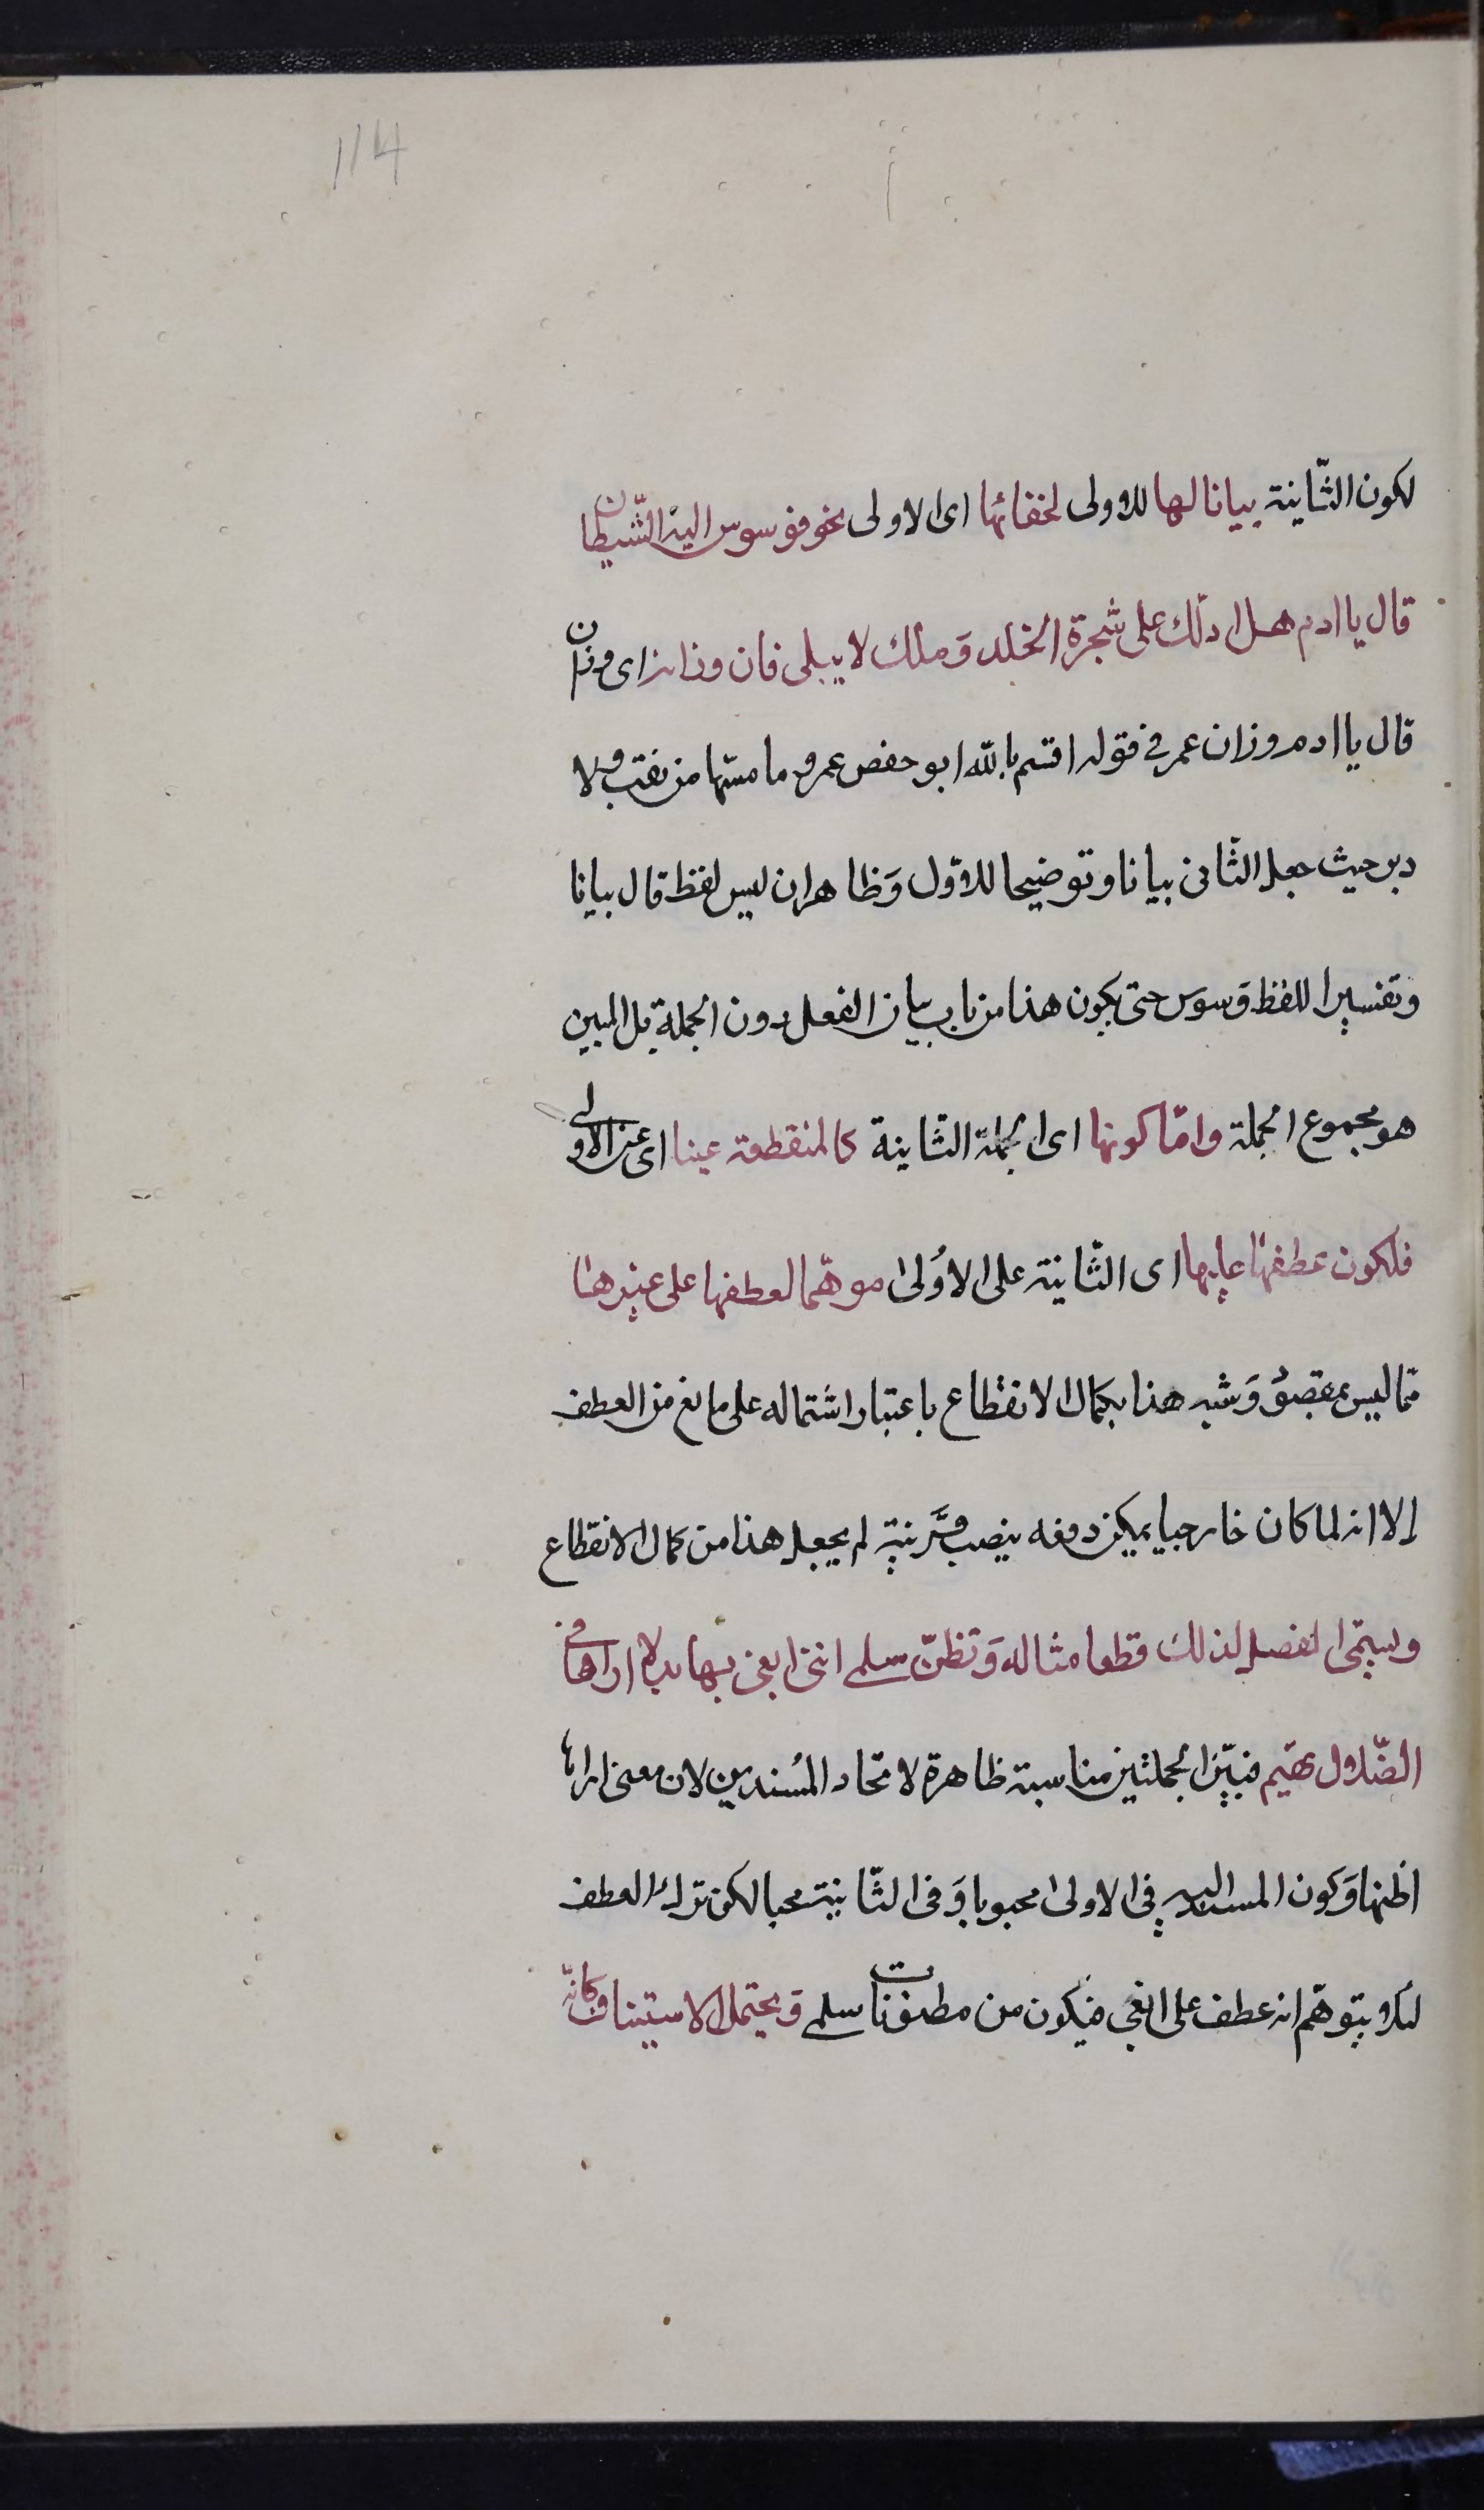 114
لكون الثّانية بيانا لها للاولى لخفائها اى الاولى نحو فوسوس اليه الشّيطان
قال يا ادم هل ادلّك على شجرة الخلد وَملك لا يبلى فان وزانه اى وزان
قال يا ادم وزان عمر فى قوله اقسم بالله ابو حفص عمر و ما مسّها من نقب ولا
دبر حيث جعل الثّانى بيانا وتوضيحا للاوّل وَظاهر ان ليس لفظ قال بيانا
وتفسيرا للفظ وَسوس حتى يكون هذا من باب بيان الفعل دون الجملة بل المبين
هو مجموع الجملة وامّا كونها اى الجملة الثّانية كالمنقطعة عنها اى عن الاولى
فلكون عطفها عليها اى الثّانية على الاُولى موهّما لعطفها على غيرها
ممّا ليس بمقصو وَشبه هذا بكمال الانقطاع باعتبار اشتماله على مانع من العطف
إلا انه لما كان خارجيا يمكن دفعه بنصب قرينة لم يجعل هذا من كمال الانقطاع
ويسمّى الفصل لذلك قطعا مثاله وَتظنّ سلمى اننى ابغى بها بدلا اراها فى
الضّلال تهيم فبين الجملتين مناسبة ظاهرة لاتحاد المُسندين لان معنى اراها
اظنها وَكون المسند اليه فى الاولى محبوبا وَفى الثّانية محبا لكن ترك العطف
لئلا يتوهّم انه عطف على ابغى فيكون من مظنونات سلمى وَيحتمل الاستيناف كانّه